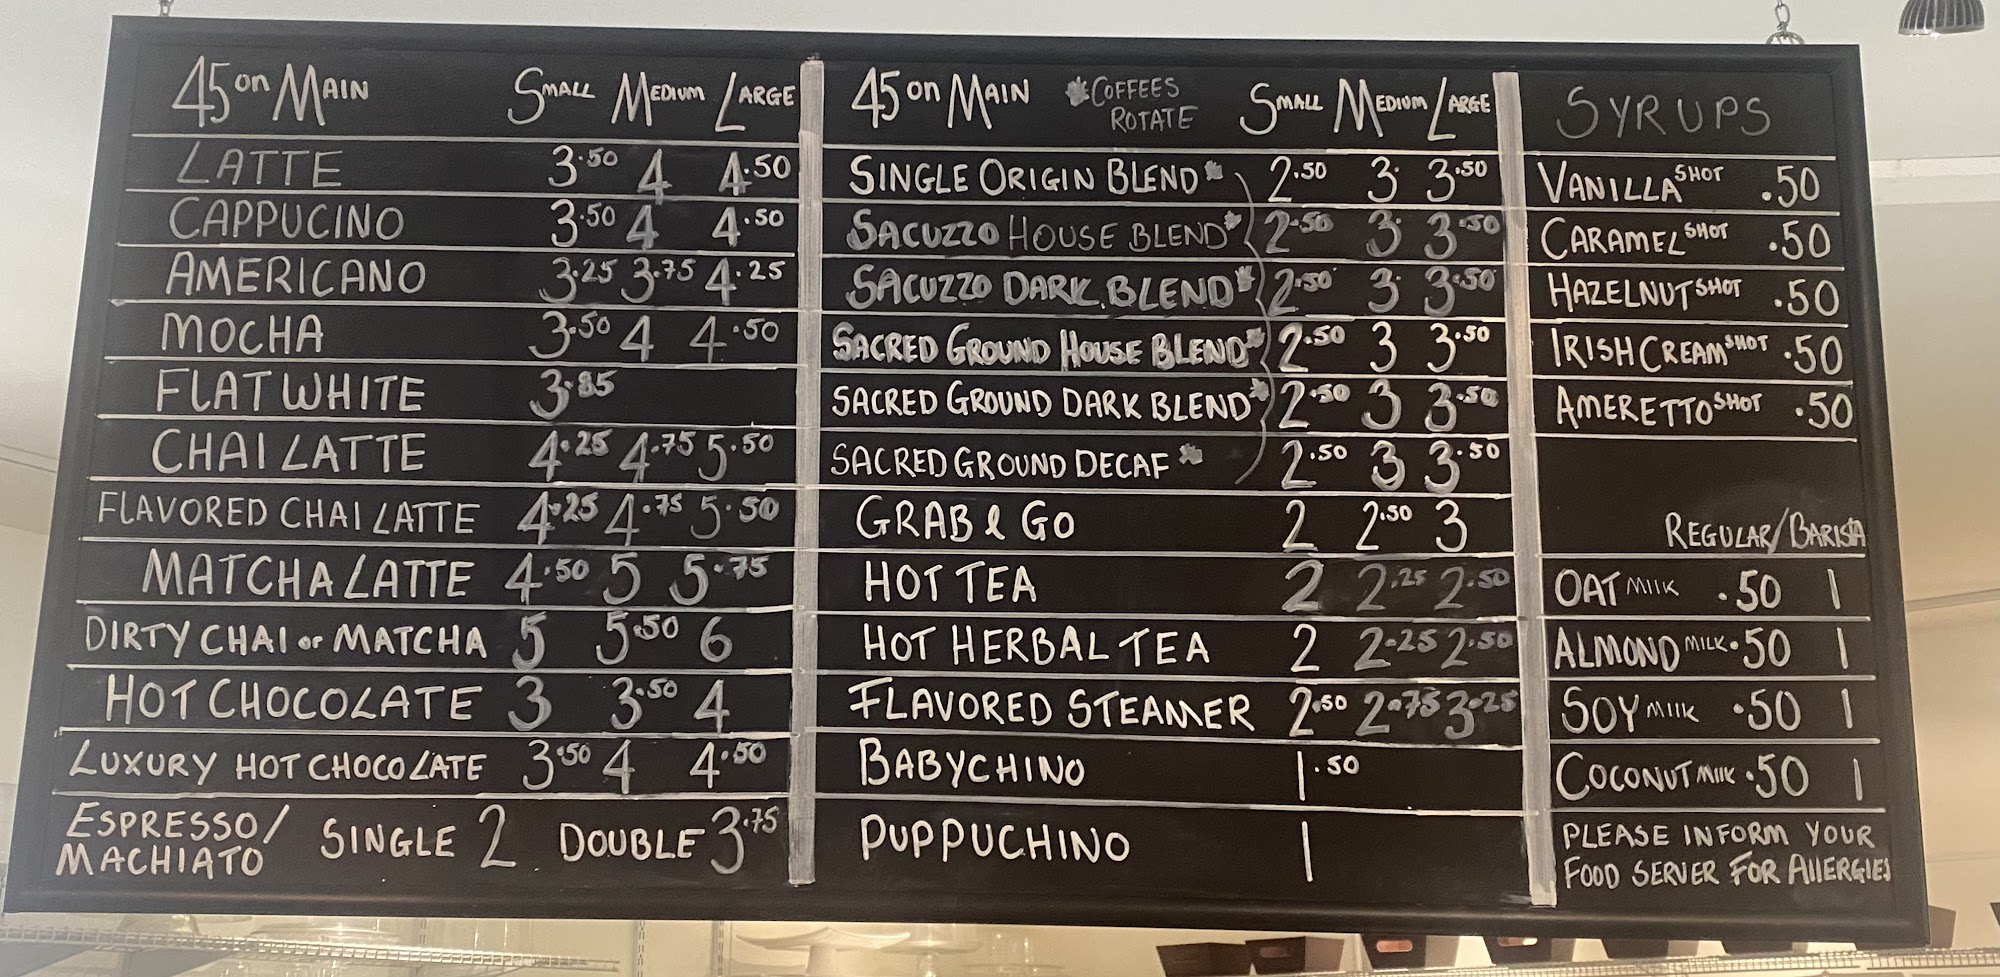 45 on MAIN SMALL MEDIUM LARGE
LATTE 3.50 4 4.50
CAPPUCINO 3.50 4 4.50
AMERICANO 3.25 3.75 4.25
MOCHA 3.50 4 4.50
FLAT WHITE 3.85
CHAI LATTE 4.25 4.75 5.50
FLAVORED CHAI LATTE 4.25 4.75 5.50
MATCHA LATTE 4.50 5 5.75
DIRTY CHAI or MATCHA 5 5.50 6
HOT CHOCOLATE 3 3.50 4
LUXURY HOT CHOCOLATE 3.50 4 4.50
ESPRESSO/
MACHIATO SINGLE 2 DOUBLE 3.75
45 on MAIN *COFFEES ROTATE SMALL MEDIUM LARGE
SINGLE ORIGIN BLEND* 2.50 3 3.50
SACUZZO HOUSE BLEND* 2.50 3 3.50
SACUZZO DARK BLEND* 2.50 3 3.50
SACRED GROUND HOUSE BLEND* 2.50 3 3.50
SACRED GROUND DARK BLEND* 2.50 3 3.50
SACRED GROUND DECAF* 2.50 3 3.50
GRAB & GO 2 2.50 3
HOT TEA 2 2.25 2.50
HOT HERBAL TEA 2 2.25 2.50
FLAVORED STEAMER 2.50 2.75 3.25
BABYCHINO 1.50
PUPPUCHINO 1
SYRUPS
VANILLA SHOT .50
CARAMEL SHOT .50
HAZELNUT SHOT .50
IRISH CREAM SHOT .50
AMERETTO SHOT .50
REGULAR/BARISTA
OAT MILK .50 1
ALMOND MILK .50 1
SOY MILK .50 1
COCONUT MILK .50 1
PLEASE INFORM YOUR
FOOD SERVER FOR ALLERGIES